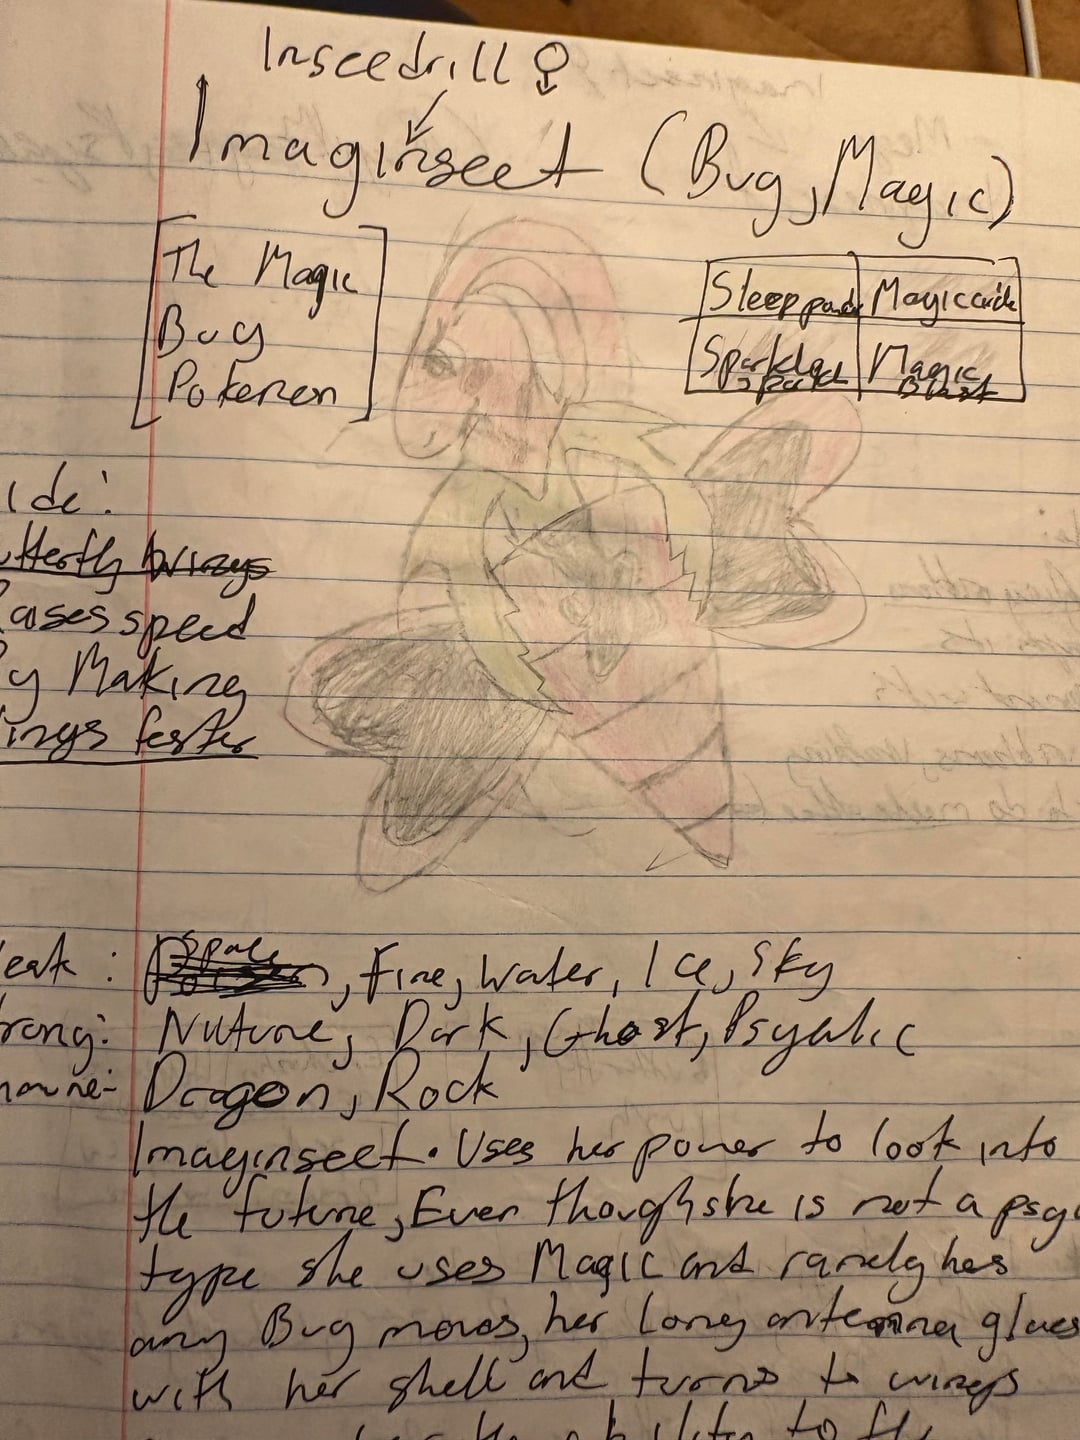 Inseedrill ♀
Imaginseet (Bug, Magic)
[The Magic
Bug
Pokemon]
Sleep Magic
Sparkle Magic
ide:
utterfly Wings
ases speed
y Making
ings faster
eak: Space, Fire, Water, Ice, Sky
rong: Nuture, Dark, Ghost, Psychic
Dragon, Rock
Imaginseet. Uses her power to look into
the future, Even though she is not a psy
type she uses Magic and rarely has
any Bug moves, her long antenna glues
with her shell and turns to wings
to fly